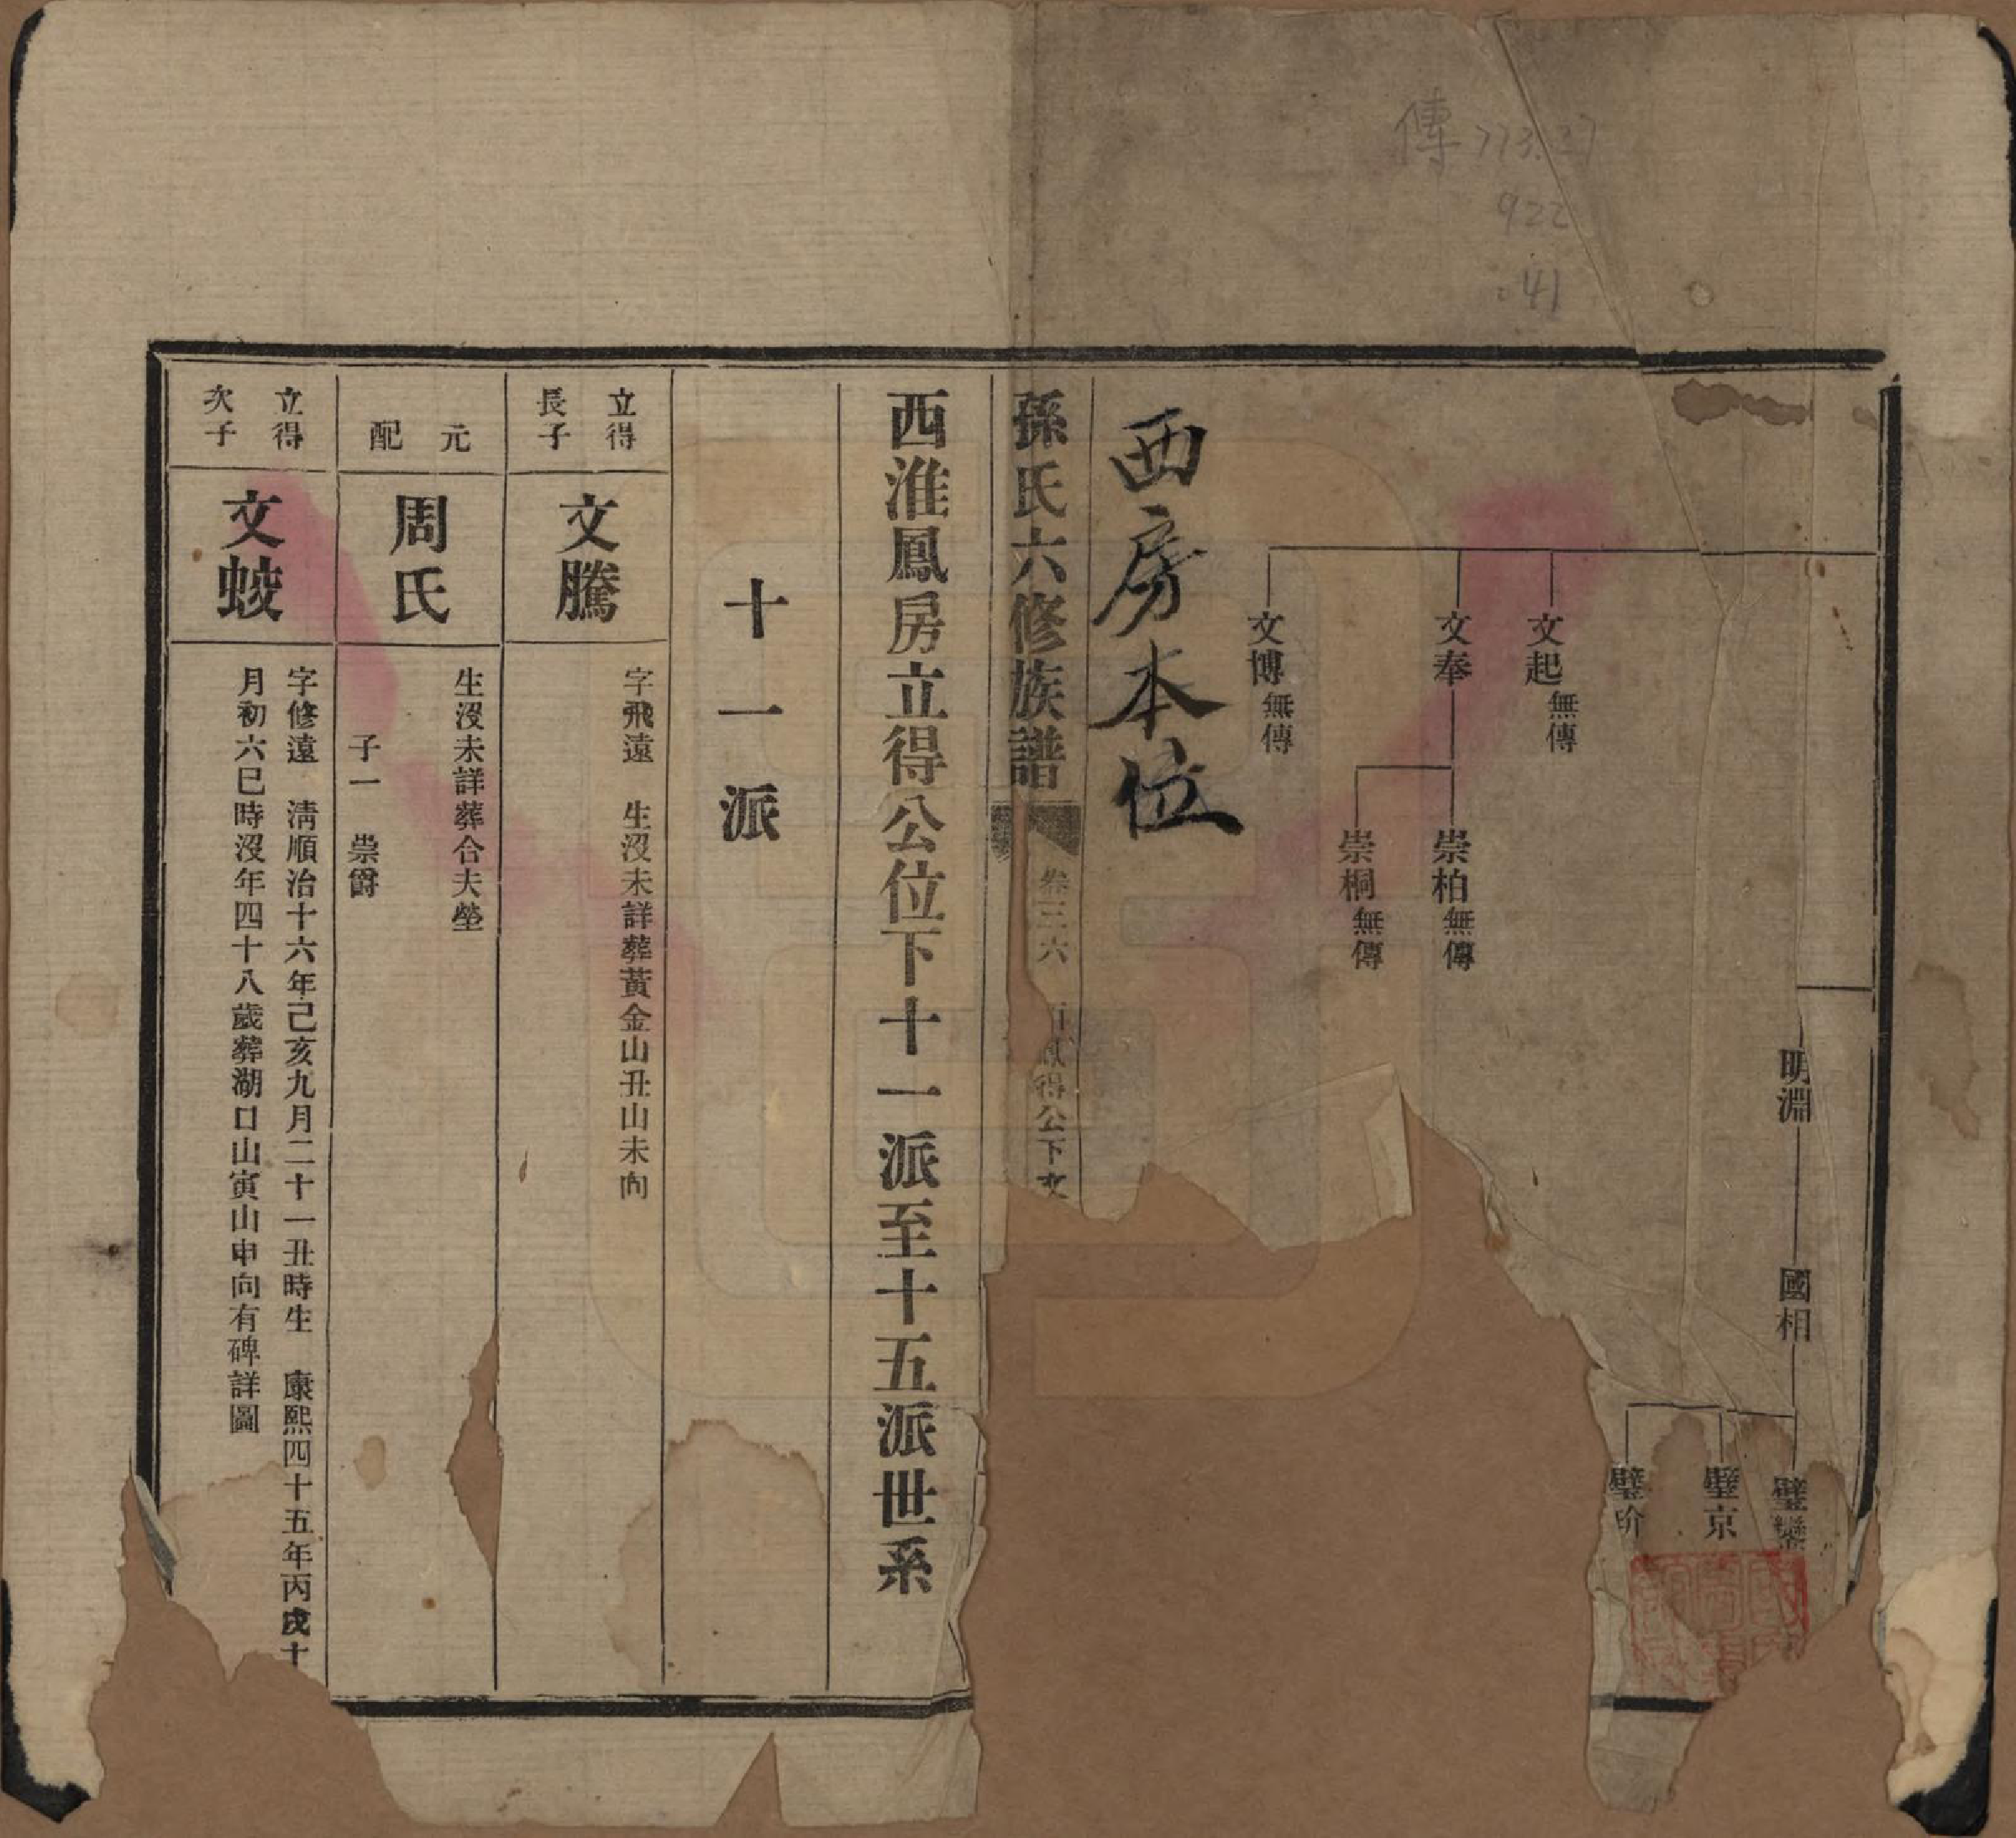 傳 773.27
922
:41
明淵
國相
璧
璧京
璧玠
文起 無傳
文奉
崇柏 無傳
崇桐 無傳
文博 無傳
西房本位
孫氏六修族譜
卷三六
鳳得公下文
西淮鳳房立得公位下十一派至十五派世系
十一派
立得
長子
文騰
字飛遠 生沒未詳葬黃金山丑山未向
元配
周氏
生沒未詳葬合夫塋
子一 崇爵
立得
次子
文蛟
字修遠 淸順治十六年己亥九月二十一丑時生 康熙四十五年丙戌十
月初六巳時沒年四十八歲葬湖口山寅山申向有碑詳圖